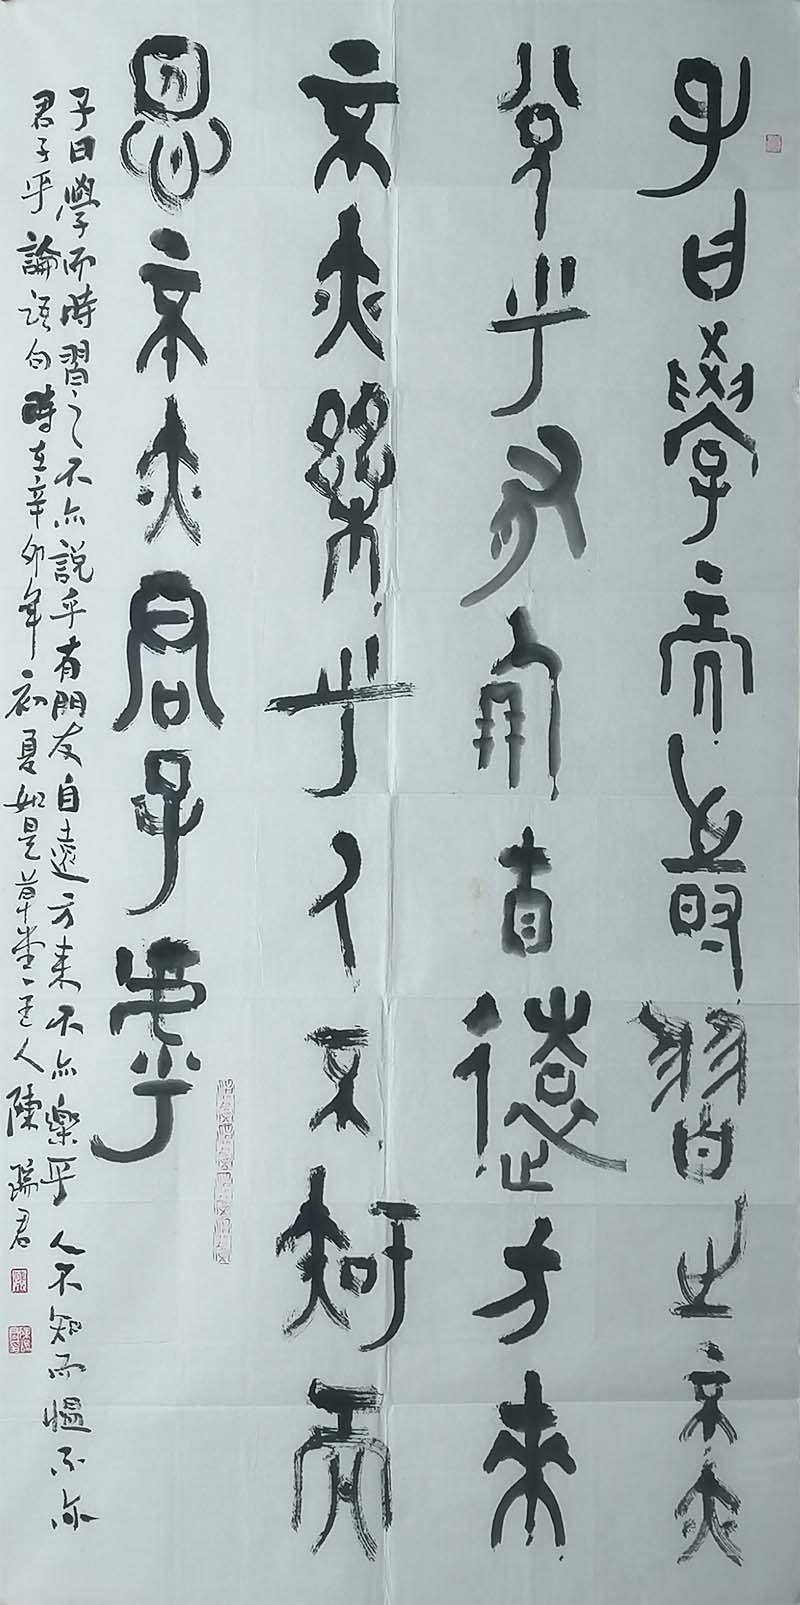 子曰學而時習之不亦
兌乎有朋自遠方來
不亦樂乎人不知而
慍不亦君子乎
子曰學而時習之不亦說乎有朋友自遠方來不亦樂乎人不知而慍不亦
君子乎 論語句 時在辛卯年初夏如是草堂主人陳瑞君